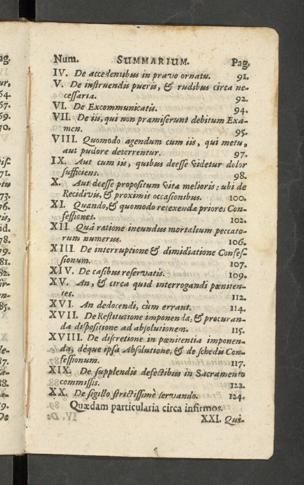 Num. SUMMARIUM. Pag.
IV. De accedentibus in pravo ornatu. 91.
V. De instruendis pueris, & rudibus circa ne-
cessaria. 92.
VI. De Excommunicatis. 94.
VII. De iis, qui non præmiserunt debitum Exa-
men. 95.
VIII. Quomodo agendum cum iis, qui metu,
aut pudore deterrentur. 97.
IX. Aut cum iis, quibus deesse videtur dolor
sufficiens. 98.
X. Aut deesse propositum vita melioris: ubi de
Recidivis, & proximis occasionibus. 100.
XI. Quando, & quomodo retexenda priores Con-
fessiones. 102.
XII Quâ ratione ineundus mortalium peccato-
rum numerus. 106.
XIII De interruptione & dimidiatione Confes-
sionum. 107.
XIV. De casibus reservatis. 109.
XV. An, & circa quid interrogandi pœniten-
tes. 112.
XVI An dedocendi, cùm errant. 114.
XVII. De Restitutione imponenda, & procuran-
da dispositione ad absolutionem. 115.
XVIII. De discretione in pœnitentia imponen-
da, déque ipsa Absolutione, & de schedis Con-
fessionum. 117.
XIX. De supplendis defectibus in Sacramento
commissis. 123.
XX. De sigillo strictissimè servando. 124.
Quædam particularia circa infirmos.
XXI. Qui-